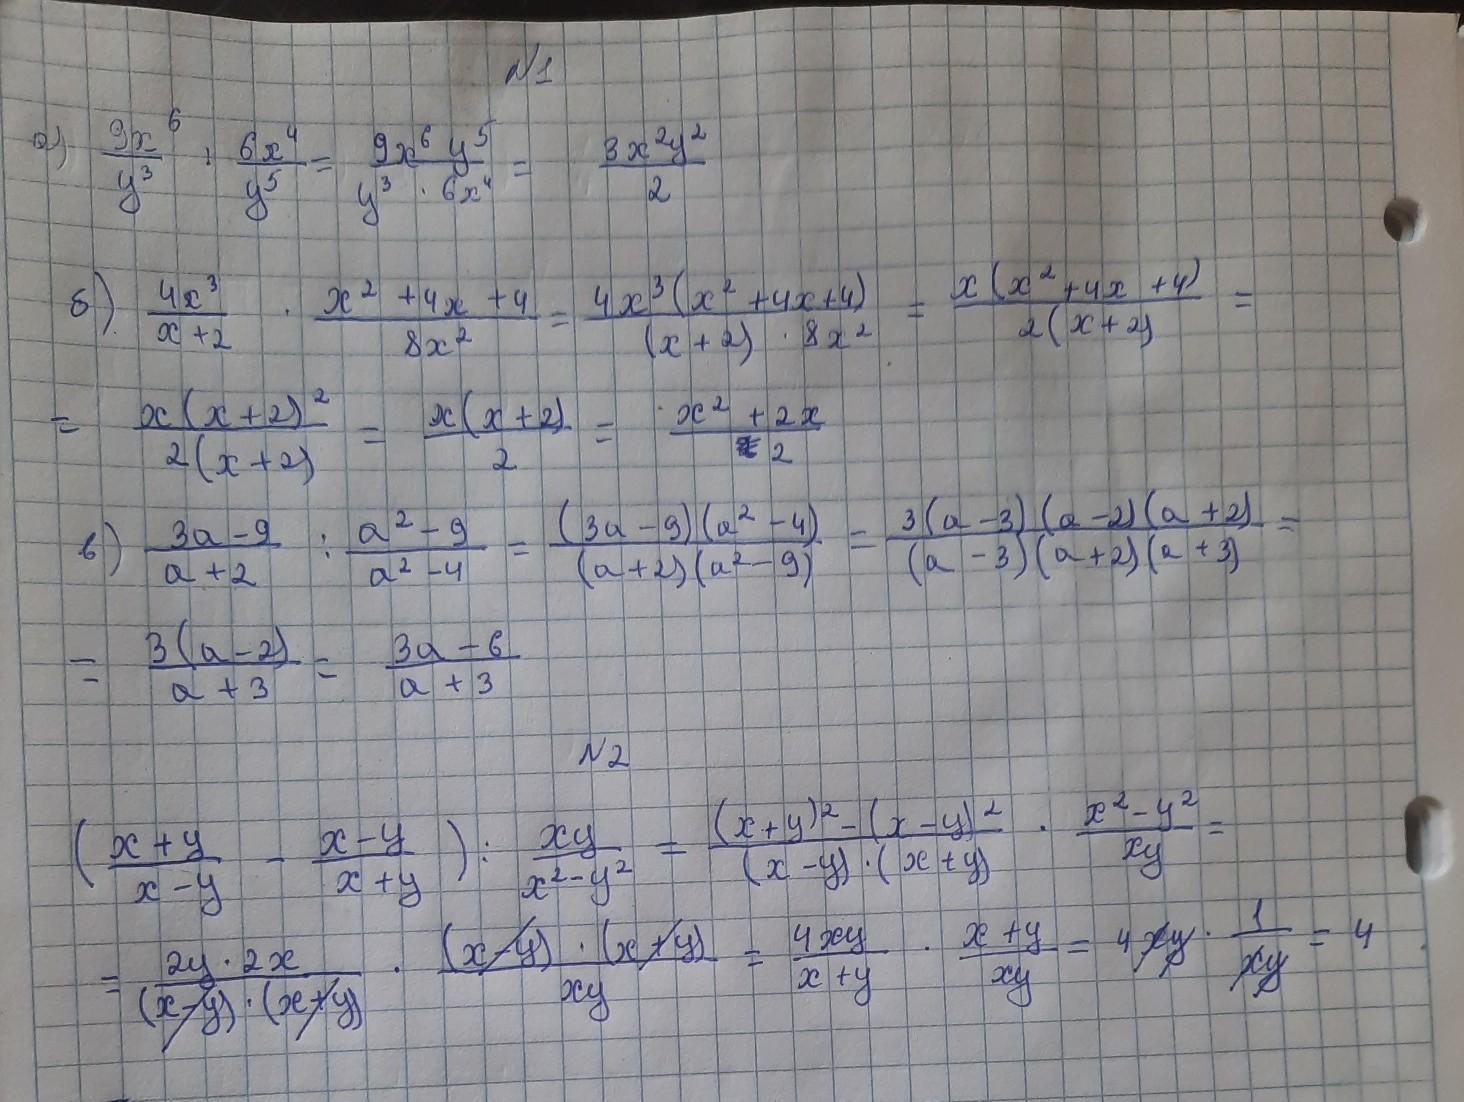 N1
а) 9x^6/y^3 : 6x^4/y^5 = 9x^6 y^5/(y^3 · 6x^4) = 3x^2y^2/2
б) 4x^3/(x+2) · (x^2+4x+4)/8x^2 = 4x^3(x^2+4x+4)/((x+2) · 8x^2) = x(x^2+4x+4)/(2(x+2)) =
= x(x+2)^2/(2(x+2)) = x(x+2)/2 = (x^2+2x)/2
в) (3a-9)/(a+2) : (a^2-9)/(a^2-4) = (3a-9)(a^2-4)/((a+2)(a^2-9)) = 3(a-3)(a-2)(a+2)/((a-3)(a+2)(a+3)) =
= 3(a-2)/(a+3) = (3a-6)/(a+3)
N2
((x+y)/(x-y) - (x-y)/(x+y)) : xy/(x^2-y^2) = ((x+y)^2-(x-y)^2)/((x-y)·(x+y)) · (x^2-y^2)/xy =
= 2y·2x/((x-y)·(x+y)) · (x-y)·(x+y)/xy = 4xy/(x+y) · (x+y)/xy = 4xy · 1/xy = 4